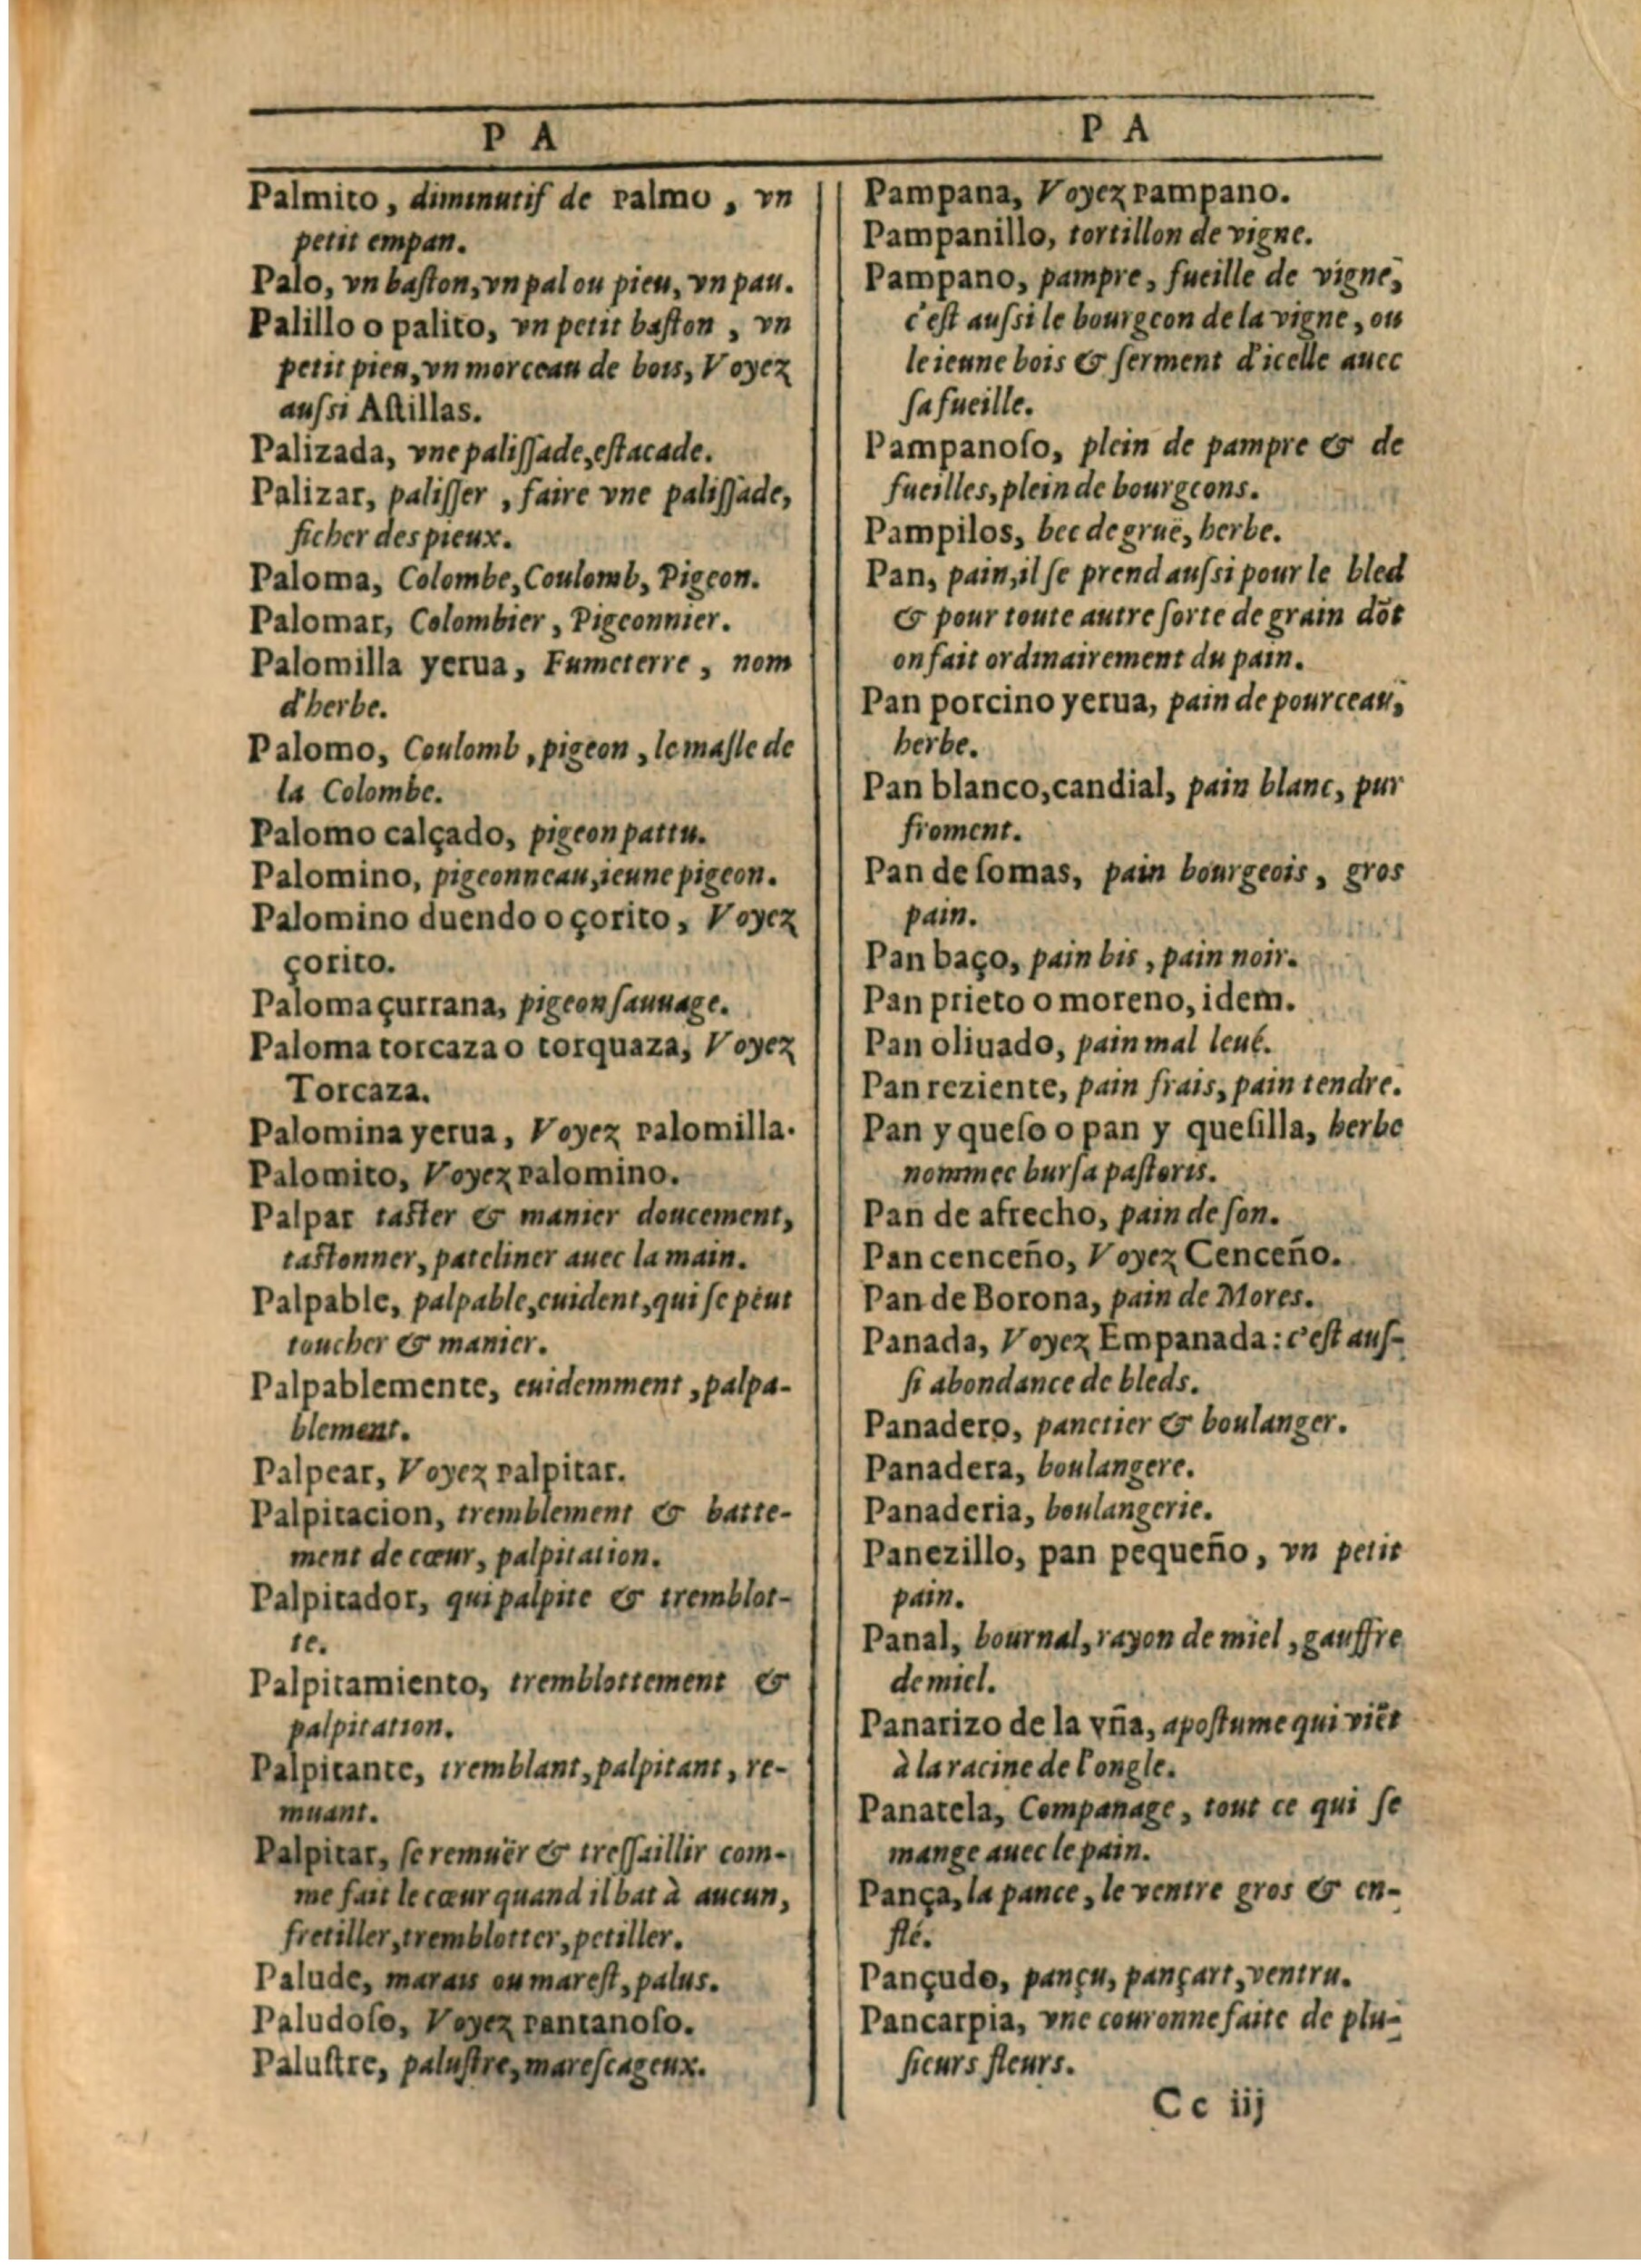 P A
Palmito, diminutif de palmo, vn
petit empan.
Palo, vn baſton, vn pal ou pieu, vn pau.
Palillo o palito, vn petit baſton, vn
petit pieu, vn morceau de bois, Voyez
auſsi Aſtillas.
Palizada, vne paliſſade, eſtacade.
Palizar, paliſſer, faire vne paliſſade,
ficher des pieux.
Paloma, Colombe, Coulomb, Pigeon.
Palomar, Colombier, Pigeonnier.
Palomilla yerua, Fumeterre, nom
d'herbe.
Palomo, Coulomb, pigeon, le maſle de
la Colombe.
Palomo calçado, pigeon pattu.
Palomino, pigeonneau, ieune pigeon.
Palomino duendo o çorito, Voyez
çorito.
Paloma çurrana, pigeon ſauuage.
Paloma torcaza o torquaza, Voyez
Torcaza.
Palomina yerua, Voyez palomilla.
Palomito, Voyez palomino.
Palpar taſter & manier doucement,
taſtonner, pateliner auec la main.
Palpable, palpable, euident, qui ſe peut
toucher & manier.
Palpablemente, euidemment, palpa-
blement.
Palpear, Voyez palpitar.
Palpitacion, tremblement & batte-
ment de cœur, palpitation.
Palpitador, qui palpite & tremblot-
te.
Palpitamiento, tremblottement &
palpitation.
Palpitante, tremblant, palpitant, re-
muant.
Palpitar, ſe remuër & treſſaillir com-
me fait le cœur quand il bat à aucun,
fretiller, tremblotter, petiller.
Palude, marais ou mareſt, palus.
Paludoſo, Voyez pantanoſo.
Paluſtre, paluſtre, mareſcageux.
P A
Pampana, Voyez pampano.
Pampanillo, tortillon de vigne.
Pampano, pampre, fueille de vigne,
c'eſt auſsi le bourgeon de la vigne, ou
le ieune bois & ſerment d'icelle auec
ſa fueille.
Pampanoſo, plein de pampre & de
fueilles, plein de bourgeons.
Pampilos, bec de gruë, herbe.
Pan, pain, il ſe prend auſsi pour le bled
& pour toute autre ſorte de grain dõt
on fait ordinairement du pain.
Pan porcino yerua, pain de pourceau,
herbe.
Pan blanco, candial, pain blanc, pur
froment.
Pan de ſomas, pain bourgeois, gros
pain.
Pan baço, pain bis, pain noir.
Pan prieto o moreno, idem.
Pan oliuado, pain mal leué.
Pan reziente, pain frais, pain tendre.
Pan y queſo o pan y queſilla, herbe
nommee burſa paſtoris.
Pan de afrecho, pain de ſon.
Pan cenceño, Voyez Cenceño.
Pan de Borona, pain de Mores.
Panada, Voyez Empanada: c'eſt auſ-
ſi abondance de bleds.
Panadero, panetier & boulanger.
Panadera, boulangere.
Panaderia, boulangerie.
Panezillo, pan pequeño, vn petit
pain.
Panal, bournal, rayon de miel, gauffre
de miel.
Panarizo de la vña, apoſtume qui viẽt
à la racine de l'ongle.
Panatela, Companage, tout ce qui ſe
mange auec le pain.
Pança, la pance, le ventre gros & en-
flé.
Pançudo, pançu, pançart, ventru.
Pancarpia, vne couronne faite de plu-
ſieurs fleurs.
Cc iij